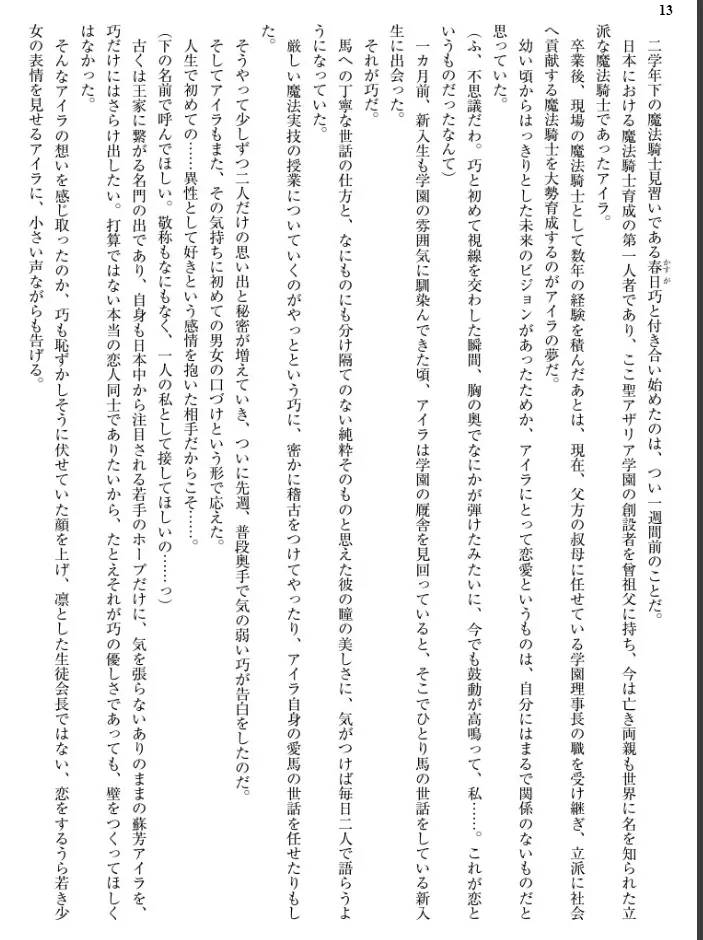 13
二学年下の魔法騎士見習いである春日巧と付き合い始めたのは、つい一週間前のことだ。
かすが
日本における魔法騎士育成の第一人者であり、ここ聖アザリア学園の創設者を曾祖父に持ち、今は亡き両親も世界に名を知られた立
派な魔法騎士であったアイラ。
卒業後、現場の魔法騎士として数年の経験を積んだあとは、現在、父方の叔母に任せている学園理事長の職を受け継ぎ、立派に社会
へ貢献する魔法騎士を大勢育成するのがアイラの夢だ。
幼い頃からはっきりとした未来のビジョンがあったためか、アイラにとって恋愛というものは、自分にはまるで関係のないものだと
思っていた。
（ふ、不思議だわ。巧と初めて視線を交わした瞬間、胸の奥でなにかが弾けたみたいに、今でも鼓動が高鳴って、私……。これが恋と
いうものだったなんて）
一カ月前、新入生も学園の雰囲気に馴染んできた頃、アイラは学園の厩舎を見回っていると、そこでひとり馬の世話をしている新入
生に出会った。
それが巧だ。
馬への丁寧な世話の仕方と、なにものにも分け隔てのない純粋そのものと思えた彼の瞳の美しさに、気がつけば毎日二人で語らうよ
うになっていた。
厳しい魔法実技の授業についていくのがやっとという巧に、密かに稽古をつけてやったり、アイラ自身の愛馬の世話を任せたりもし
た。
そうやって少しずつ二人だけの思い出と秘密が増えていき、ついに先週、普段奥手で気の弱い巧が告白をしたのだ。
そしてアイラもまた、その気持ちに初めての男女の口づけという形で応えた。
人生で初めての……異性として好きという感情を抱いた相手だからこそ……。
（下の名前で呼んでほしい。敬称もなにもなく、一人の私として接してほしいの……っ）
古くは王家に繋がる名門の出であり、自身も日本中から注目される若手のホープだけに、気を張らないありのままの蘇芳アイラを、
巧だけにはさらけ出したい。打算ではない本当の恋人同士でありたいから、たとえそれが巧の優しさであっても、壁をつくってほしく
はなかった。
そんなアイラの想いを感じ取ったのか、巧も恥ずかしそうに伏せていた顔を上げ、凛とした生徒会長ではない、恋をするうら若き少
女の表情を見せるアイラに、小さい声ながらも告げる。